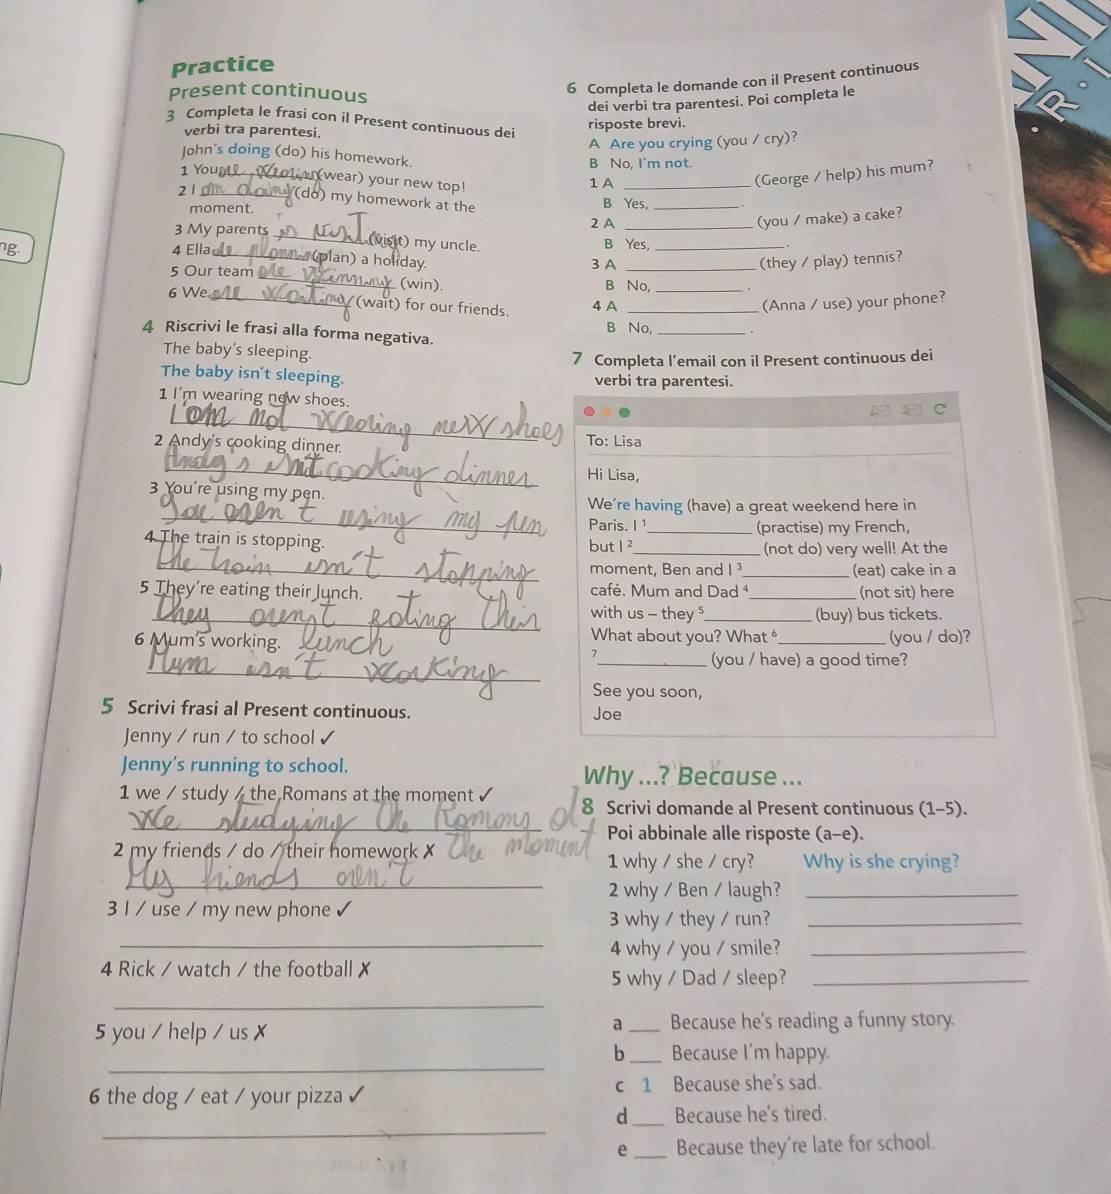 Practice
Present continuous
3 Completa le frasi con il Present continuous dei
verbi tra parentesi.
John's doing (do) his homework.
1 You are wearing (wear) your new top!
2 I am doing (do) my homework at the
moment.
3 My parents is (visit) my uncle.
4 Ella (plan) a holiday.
5 Our team (win).
6 We are waiting (wait) for our friends.
4 Riscrivi le frasi alla forma negativa.
The baby's sleeping.
The baby isn't sleeping.
1 I'm wearing new shoes.
I am not wearing new shoes
2 Andy's cooking dinner.
cooking dinner
3 You're using my pen.
You aren't using my pen
4 The train is stopping.
the train isn't
5 They're eating their lunch.
They aren't eating their
lunch
6 Mum's working.
Mum isn't working
5 Scrivi frasi al Present continuous.
Jenny / run / to school ✓
Jenny's running to school.
1 we / study / the Romans at the moment ✓
We studying the Romans at
the moment
2 my friends / do / their homework ✗
My friends aren't
3 I / use / my new phone ✓
4 Rick / watch / the football ✗
5 you / help / us ✗
6 the dog / eat / your pizza ✓
6 Completa le domande con il Present continuous
dei verbi tra parentesi. Poi completa le
risposte brevi.
A Are you crying (you / cry)?
B No, I'm not.
1 A ____ (George / help) his mum?
B Yes, ____.
2 A ____ (you / make) a cake?
B Yes, ____.
3 A ____ (they / play) tennis?
B No, ____.
4 A ____ (Anna / use) your phone?
B No, ____.
7 Completa l'email con il Present continuous dei
verbi tra parentesi.
To: Lisa
Hi Lisa,
We're having (have) a great weekend here in
Paris. I 1____ (practise) my French,
but I 2____ (not do) very well! At the
moment, Ben and I 3____ (eat) cake in a
café. Mum and Dad 4____ (not sit) here
with us – they 5____ (buy) bus tickets.
What about you? What 6____ (you / do)?
7____ (you / have) a good time?
See you soon,
Joe
Why ...? Because ...
8 Scrivi domande al Present continuous (1–5).
Poi abbinale alle risposte (a–e).
1 why / she / cry? Why is she crying?
2 why / Ben / laugh? ____
3 why / they / run? ____
4 why / you / smile? ____
5 why / Dad / sleep? ____
a ____ Because he's reading a funny story.
b ____ Because I'm happy.
c 1 Because she's sad.
d ____ Because he's tired.
e ____ Because they're late for school.
ng.